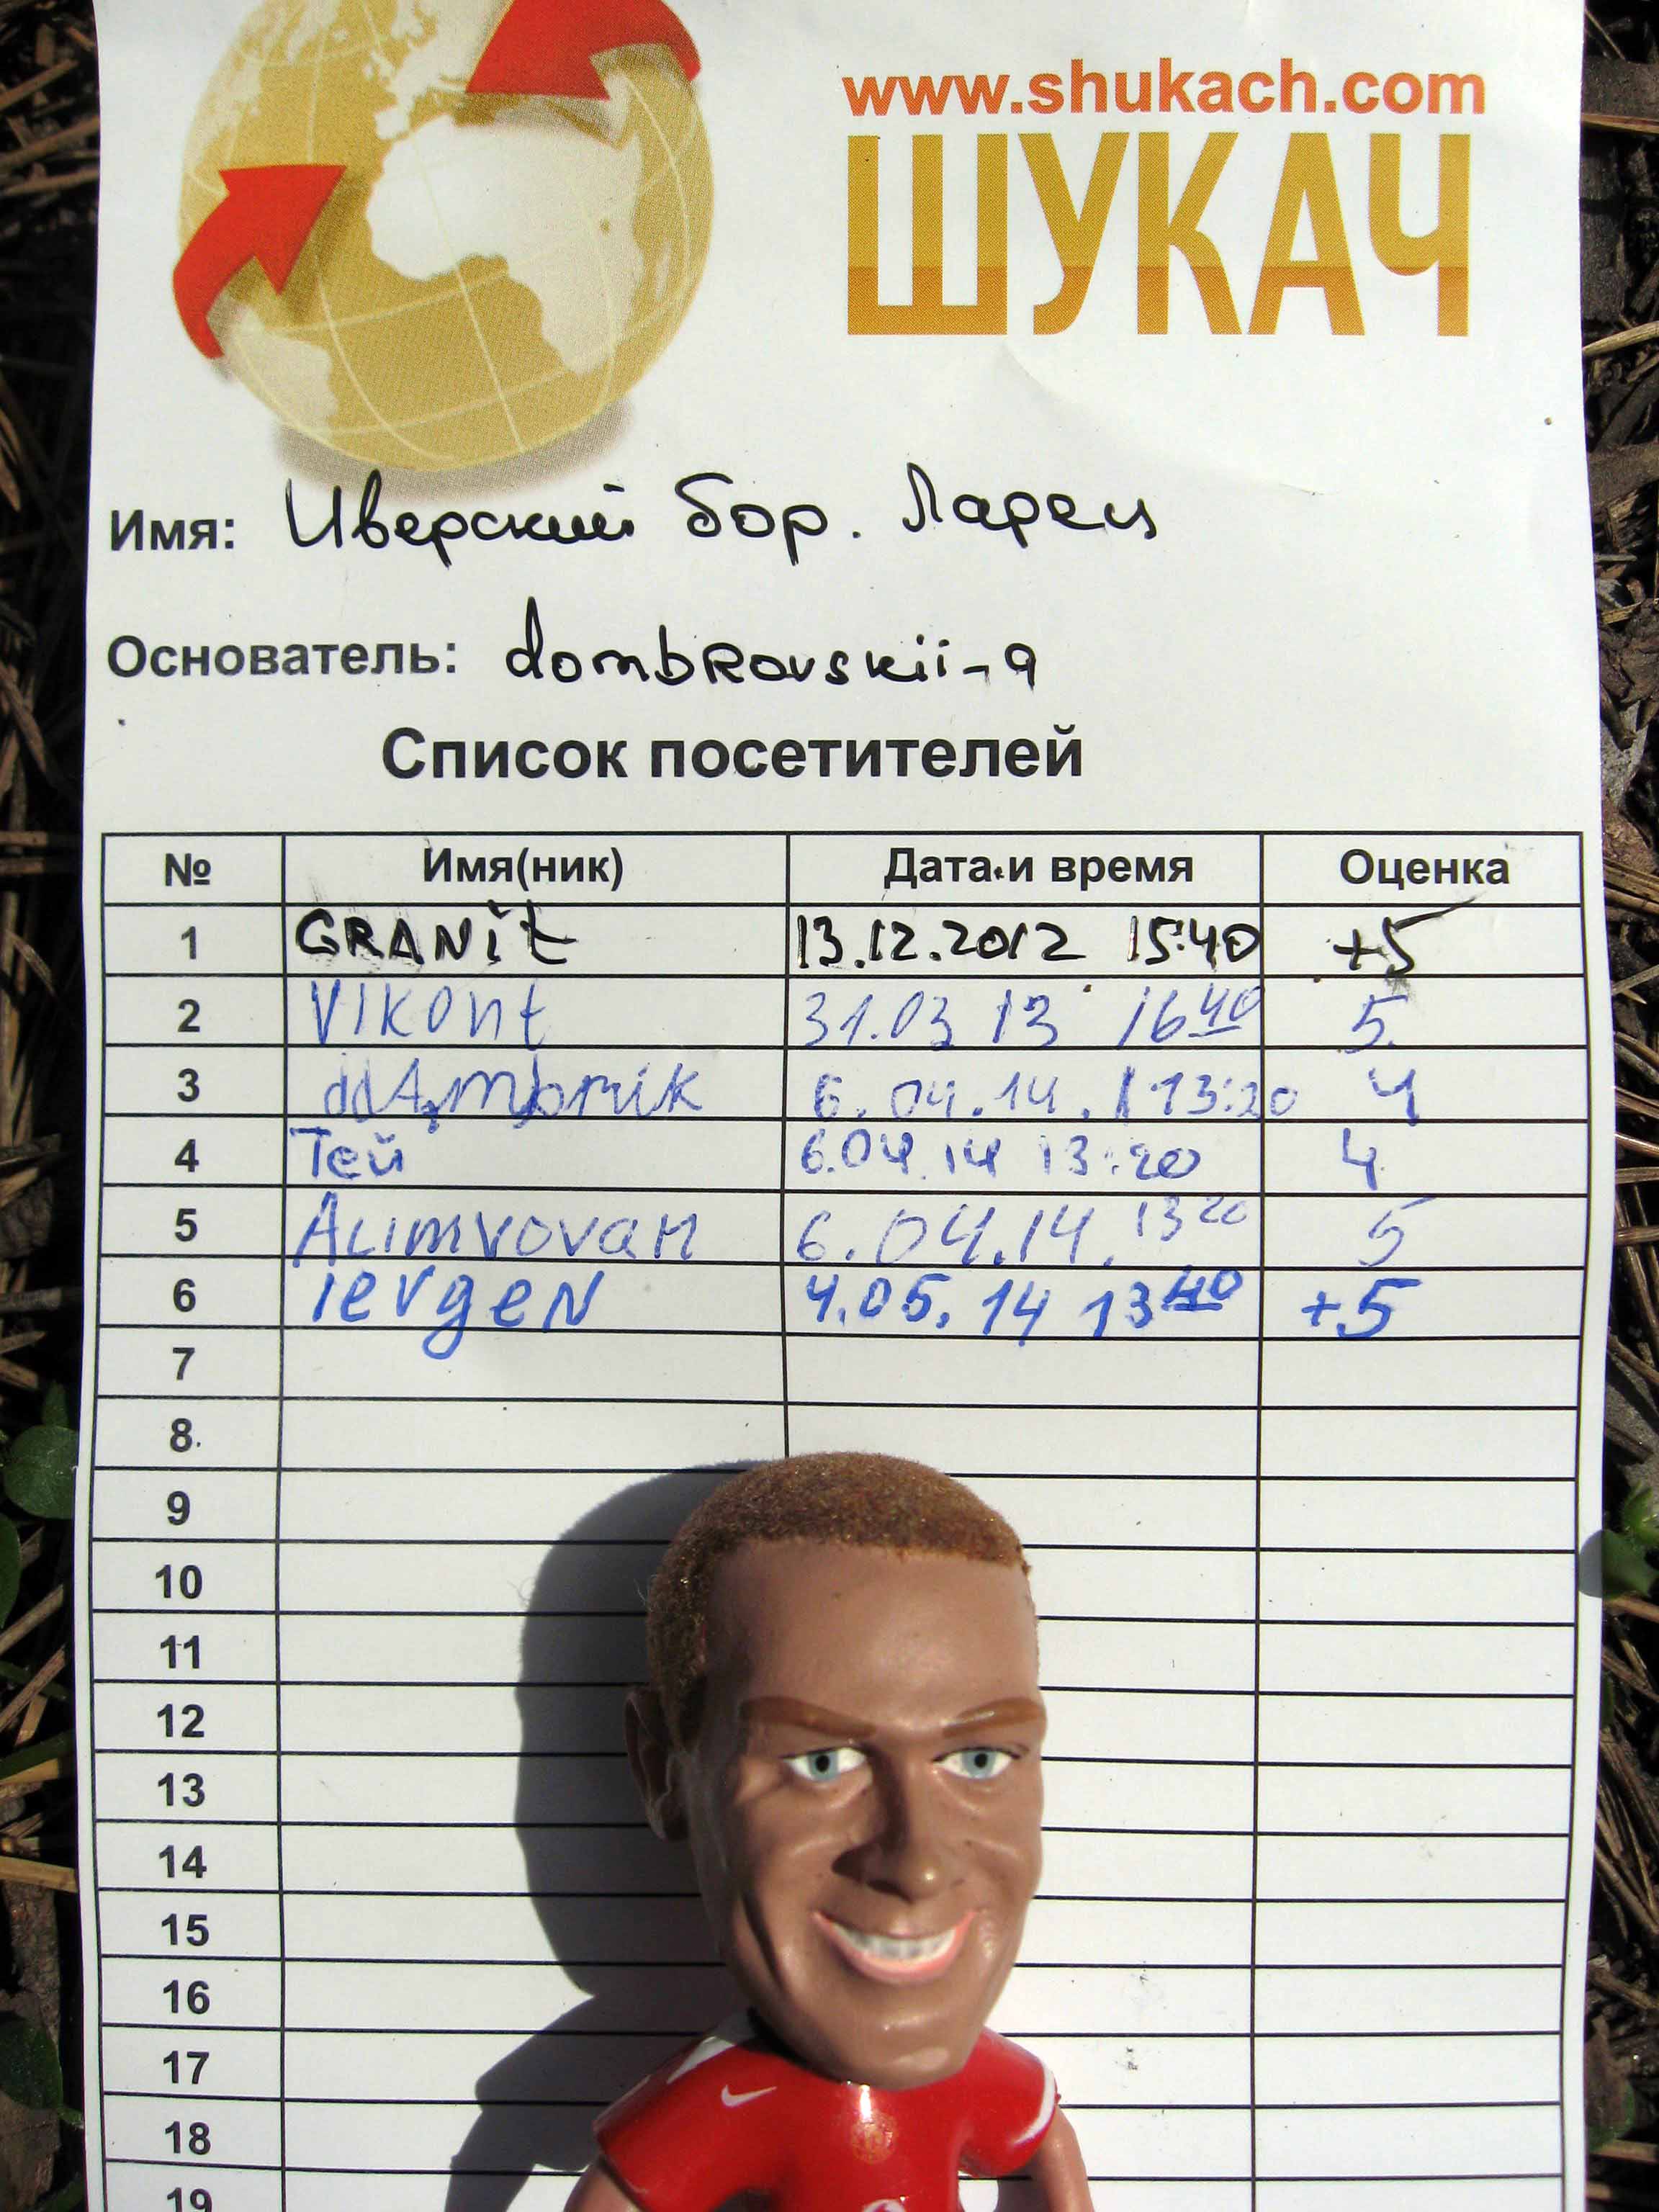 www.shukach.com
ШУКАЧ
Имя: Иверский бор. Ларец
Основатель: dombrovskii-a
Список посетителей
№ Имя(ник) Дата и время Оценка
1 GRANit 13.12.2012 15:40 +5
2 VIKont 31.03 13 16 40 5
3 6.04.14. 13:20 4
4 Тей 6.04.14 13:20 4
5 Alimvovan 6.04.14. 13 20 5
6 ievgen 4.05.14 13 40 +5
7
8
9
10
11
12
13
14
15
16
17
18
19